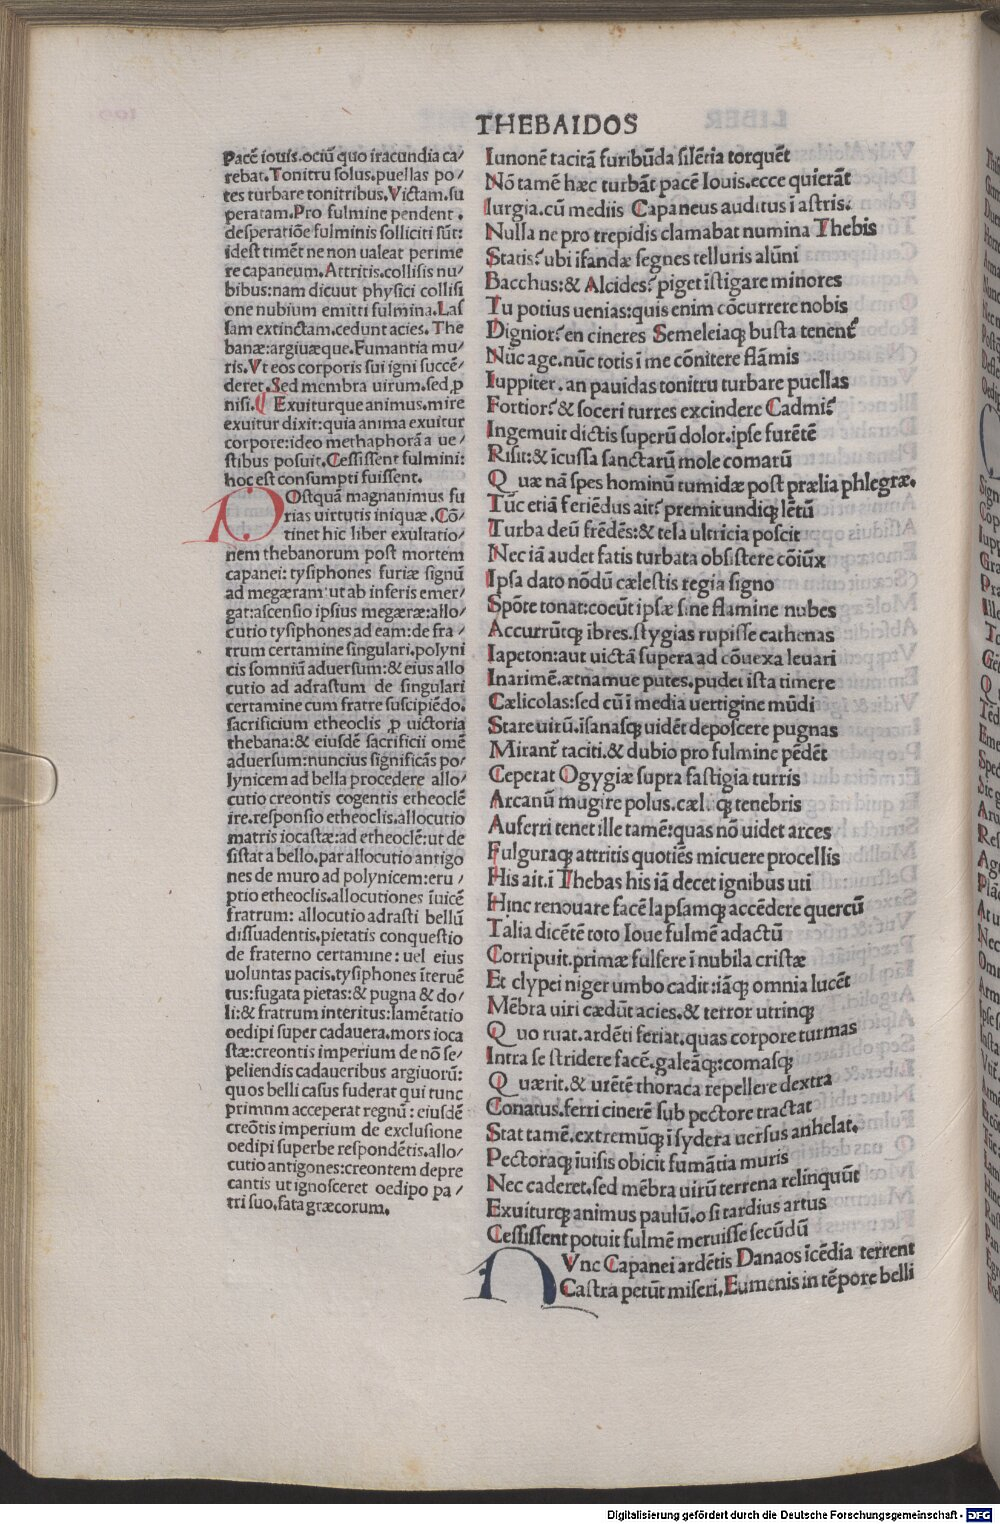 THEBAIDOS
Pacē iouis.ociū quo iracundia ca/
rebat.Tonitru solus.puellas po/
tes turbare tonitribus.Victam.su
peratam.Pro fulmine pendent.
desperatiōe fulminis solliciti sūt:
idest timēt ne non ualeat perime
re capaneum.Attritis.collisis nu/
bibus:nam dicuut physici collisi
one nubium emitti fulmina.Las
sam extinctam.cedunt acies. The
banæ:argiuæque.Fumantia mu/
ris.Vt eos corporis sui igni succē/
deret.Sed membra uirum.sed ꝓ
nisi. Exuiturque animus.mire
exuitur dixit:quia anima exuitur
corpore:ideo methaphorā a ue/
stibus posuit.Cessissent fulmini:
hoc est consumpti fuissent.
POstquā magnanimus fu
rias uirtutis iniquæ.Cō/
tinet hic liber exultatio/
nem thebanorum post mortem
capanei: tysiphones furiæ signū
ad megæram:ut ab inferis emer/
gat:ascensio ipsius megæræ:allo/
cutio tysiphones ad eam:de fra/
trum certamine singulari.polyni
cis somniū aduersum:& eius allo
cutio ad adrastum de singulari
certamine cum fratre suscipiēdo.
sacrificium etheoclis ꝓ uictoria
thebana:& eiusdē sacrificii omē
aduersum:nuncius significās po/
lynicem ad bella procedere allo/
cutio creontis cogentis etheoclē
ire.responsio etheoclis.allocutio
matris iocastæ:ad etheoclē:ut de
sistat a bello.par allocutio antigo
nes de muro ad polynicem:eru/
ptio etheoclis.allocutiones īuicē
fratrum: allocutio adrasti bellū
dissuadentis.pietatis conquestio
de fraterno certamine: uel eius
uoluntas pacis.tysiphones īteruē
tus:fugata pietas:& pugna & do/
li:& fratrum interitus:lamētatio
oedipi super cadauera.mors ioca
stæ:creontis imperium de nō se/
peliendis cadaueribus argiuorū:
quos belli casus fuderat qui tunc
primnm acceperat regnū: eiusdē
creōtis imperium de exclusione
oedipi superbe respondētis.allo/
cutio antigones:creontem depre
cantis ut ignosceret oedipo pa/
tri suo.fata græcorum.
Iunonē tacitā furibūda silētia torquēt
Nō tamē hæc turbāt pacē Iouis.ecce quierāt
Iurgia.cū mediis Capaneus auditus ī astris:
Nulla ne pro trepidis clamabat numina Thebis
Statis? ubi ifandæ segnes telluris alūni
Bacchus:& Alcides? piget īstigare minores
Tu potius uenias:quis enim cōcurrere nobis
Dignior? en cineres Semeleiaq; busta tenent
Nūc age.nūc totis ī me cōnitere flāmis
Iuppiter.an pauidas tonitru turbare puellas
Fortior? & soceri turres excindere Cadmi?
Ingemuit dictis superū dolor.ipse furētē
Risit:& īcussa sanctarū mole comarū
Quæ nā spes hominū tumidæ post prælia phlegræ.
Tūc etiā feriēdus ait? premit undiq; lētū
Turba deū frēdēs:& tela ultricia poscit
Nec iā audet fatis turbata obsistere cōiūx
Ipsa dato nōdū cælestis regia signo
Spōte tonat:coeūt ipsæ sine flamine nubes
Accurrūtq; ībres.stygias rupisse cathenas
Iapeton:aut uictā supera ad cōuexa leuari
Inarimē.ætnamue putes.pudet ista timere
Cælicolas:sed cū ī media uertigine mūdi
Stare uirū.īsanasq; uidēt deposcere pugnas
Mirant̄ taciti.& dubio pro fulmine pēdēt
Ceperat Ogygiæ supra fastigia turris
Arcanū mugire polus.cæl. q; tenebris
Auferri tenet ille tamē:quas nō uidet arces
Fulguraq; attritis quotiēs micuere procellis
His ait.ī Thebas his iā decet ignibus uti
Hinc renouare facē lapsamq; accēdere quercū
Talia dicētē toto Ioue fulmē adactū
Corripuit.primæ fulsere ī nubila cristæ
Et clypei niger umbo cadit:iāq; omnia lucēt
Mēbra uiri cædūt acies.& terror utrinq;
Quo ruat.ardēti feriat.quas corpore turmas
Intra se stridere facē.galeāq;:comasq;
Quærit.& urētē thoraca repellere dextra
Conatus.ferri cinerē sub pectore tractat
Stat tamē.extremūq; ī sydera uersus anhelat.
Pectoraq; īuisis obicit fumātia muris
Nec caderet.sed mēbra uirū terrena relinquūt
Exuiturq; animus paulū.o si tardius artus
Cessissent potuit fulmē meruisse secūdū
NVnc Capanei ardētis Danaos īcēdia terrent
Castra petūt miseri.Eumenis in tēpore belli
Digitalisierung gefördert durch die Deutsche Forschungsgemeinschaft - DFG